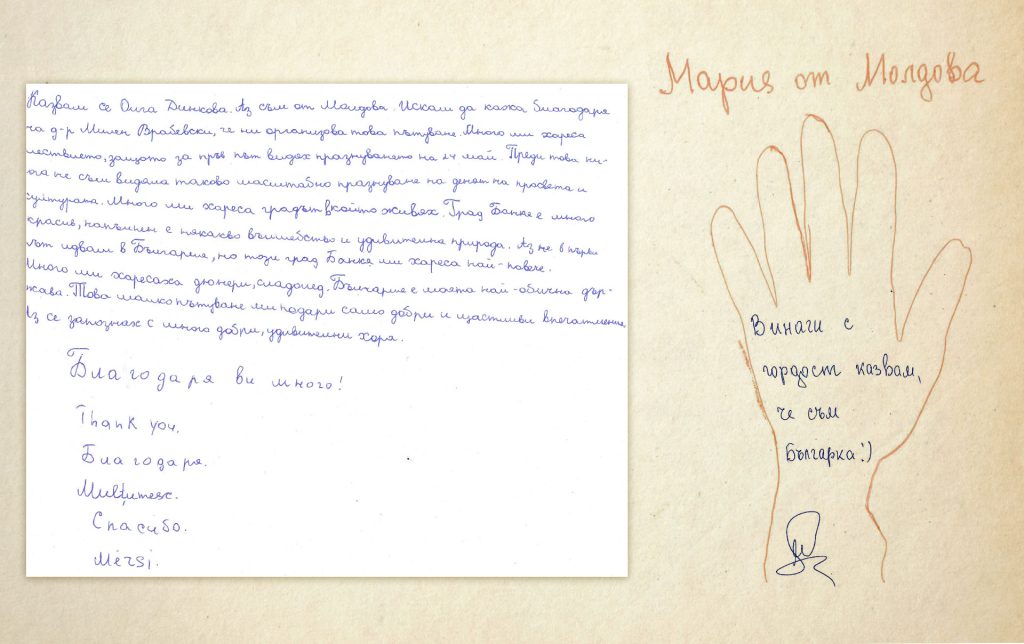 Казвам се Олга Динкова. Аз съм от Молдова. Искам да кажа благодаря
на д-р Милен Врабевски, че ни организова това пътуване. Много ми хареса
шествието, защото за пръв път видях празнуването на 24 май. Преди това ни-
ога не съм видяла таково масштабно празнуване на денят на просвета и
културата. Много ми хареса градът в който живях. Град Банкя е много
красив, напълнен с някакво вълшебство и удивителна природа. Аз не в първи
път идвам в България, но този град Банкя ми хареса най-повече.
Много ми харесаха дюнери, сладолед. България е моята най-обична дър-
жава. Това малко пътуване ми подари само добри и щастливи впечатления.
Аз се запознах с много добри, удивителни хора.
Благодаря ви много!
Thank you.
Благодаря.
Mulțumesc.
Спасибо.
Mersi.
Мария от Молдова
Винаги с
гордост казвам,
че съм
българка:)